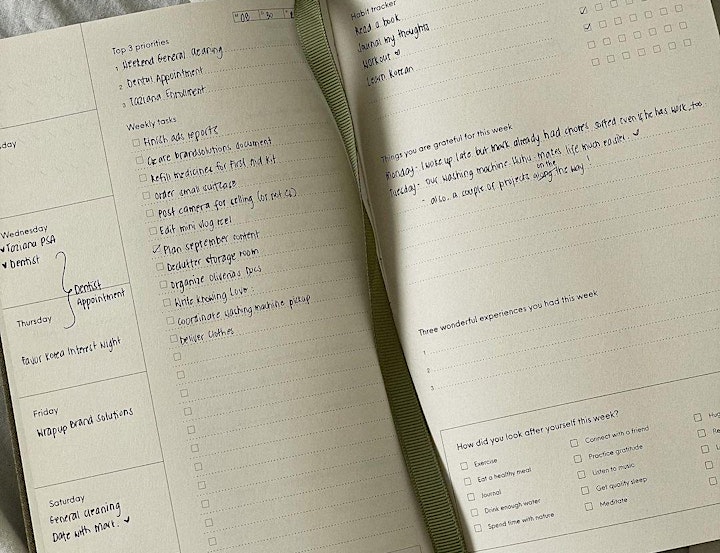 08 30
Top 3 priorities
1 Weekend General cleaning
2 Dental Appointment
3 Taziana Enrollment
Weekly tasks
Finish ads reports
Create brandsolutions document
Refill medicines for First Aid Kit
order small suitcase
Post camera for selling (or not
Edit mini vlog reel
Plan september content
Declutter storage room
Organize Docs
Write Knowing Love
Coordinate washing machine pickup
Deliver clothes
day
Wednesday
Taziana PSA
Dentist
Dentist
Appointment
Thursday
Favor Korea Interest Night
Friday
Wrapup Brand Solutions
Saturday
General cleaning
Date with Mark.
Habit tracker
Read a book
Journal my thoughts
Workout
Learn Korean
Things you are grateful for this week
Monday: I woke up late but Mark already had chores sorted even if he has work, too.
Tuesday: our washing machine. Huhu. makes life much easier.
- also, a couple of projects along the way!
on the
Three wonderful experiences you had this week
1
2
3
How did you look after yourself this week?
Exercise
Eat a healthy meal
Journal
Drink enough water
Spend time with nature
Connect with a friend
Practice gratitude
Listen to music
Get quality sleep
Meditate
Hug
Re
L